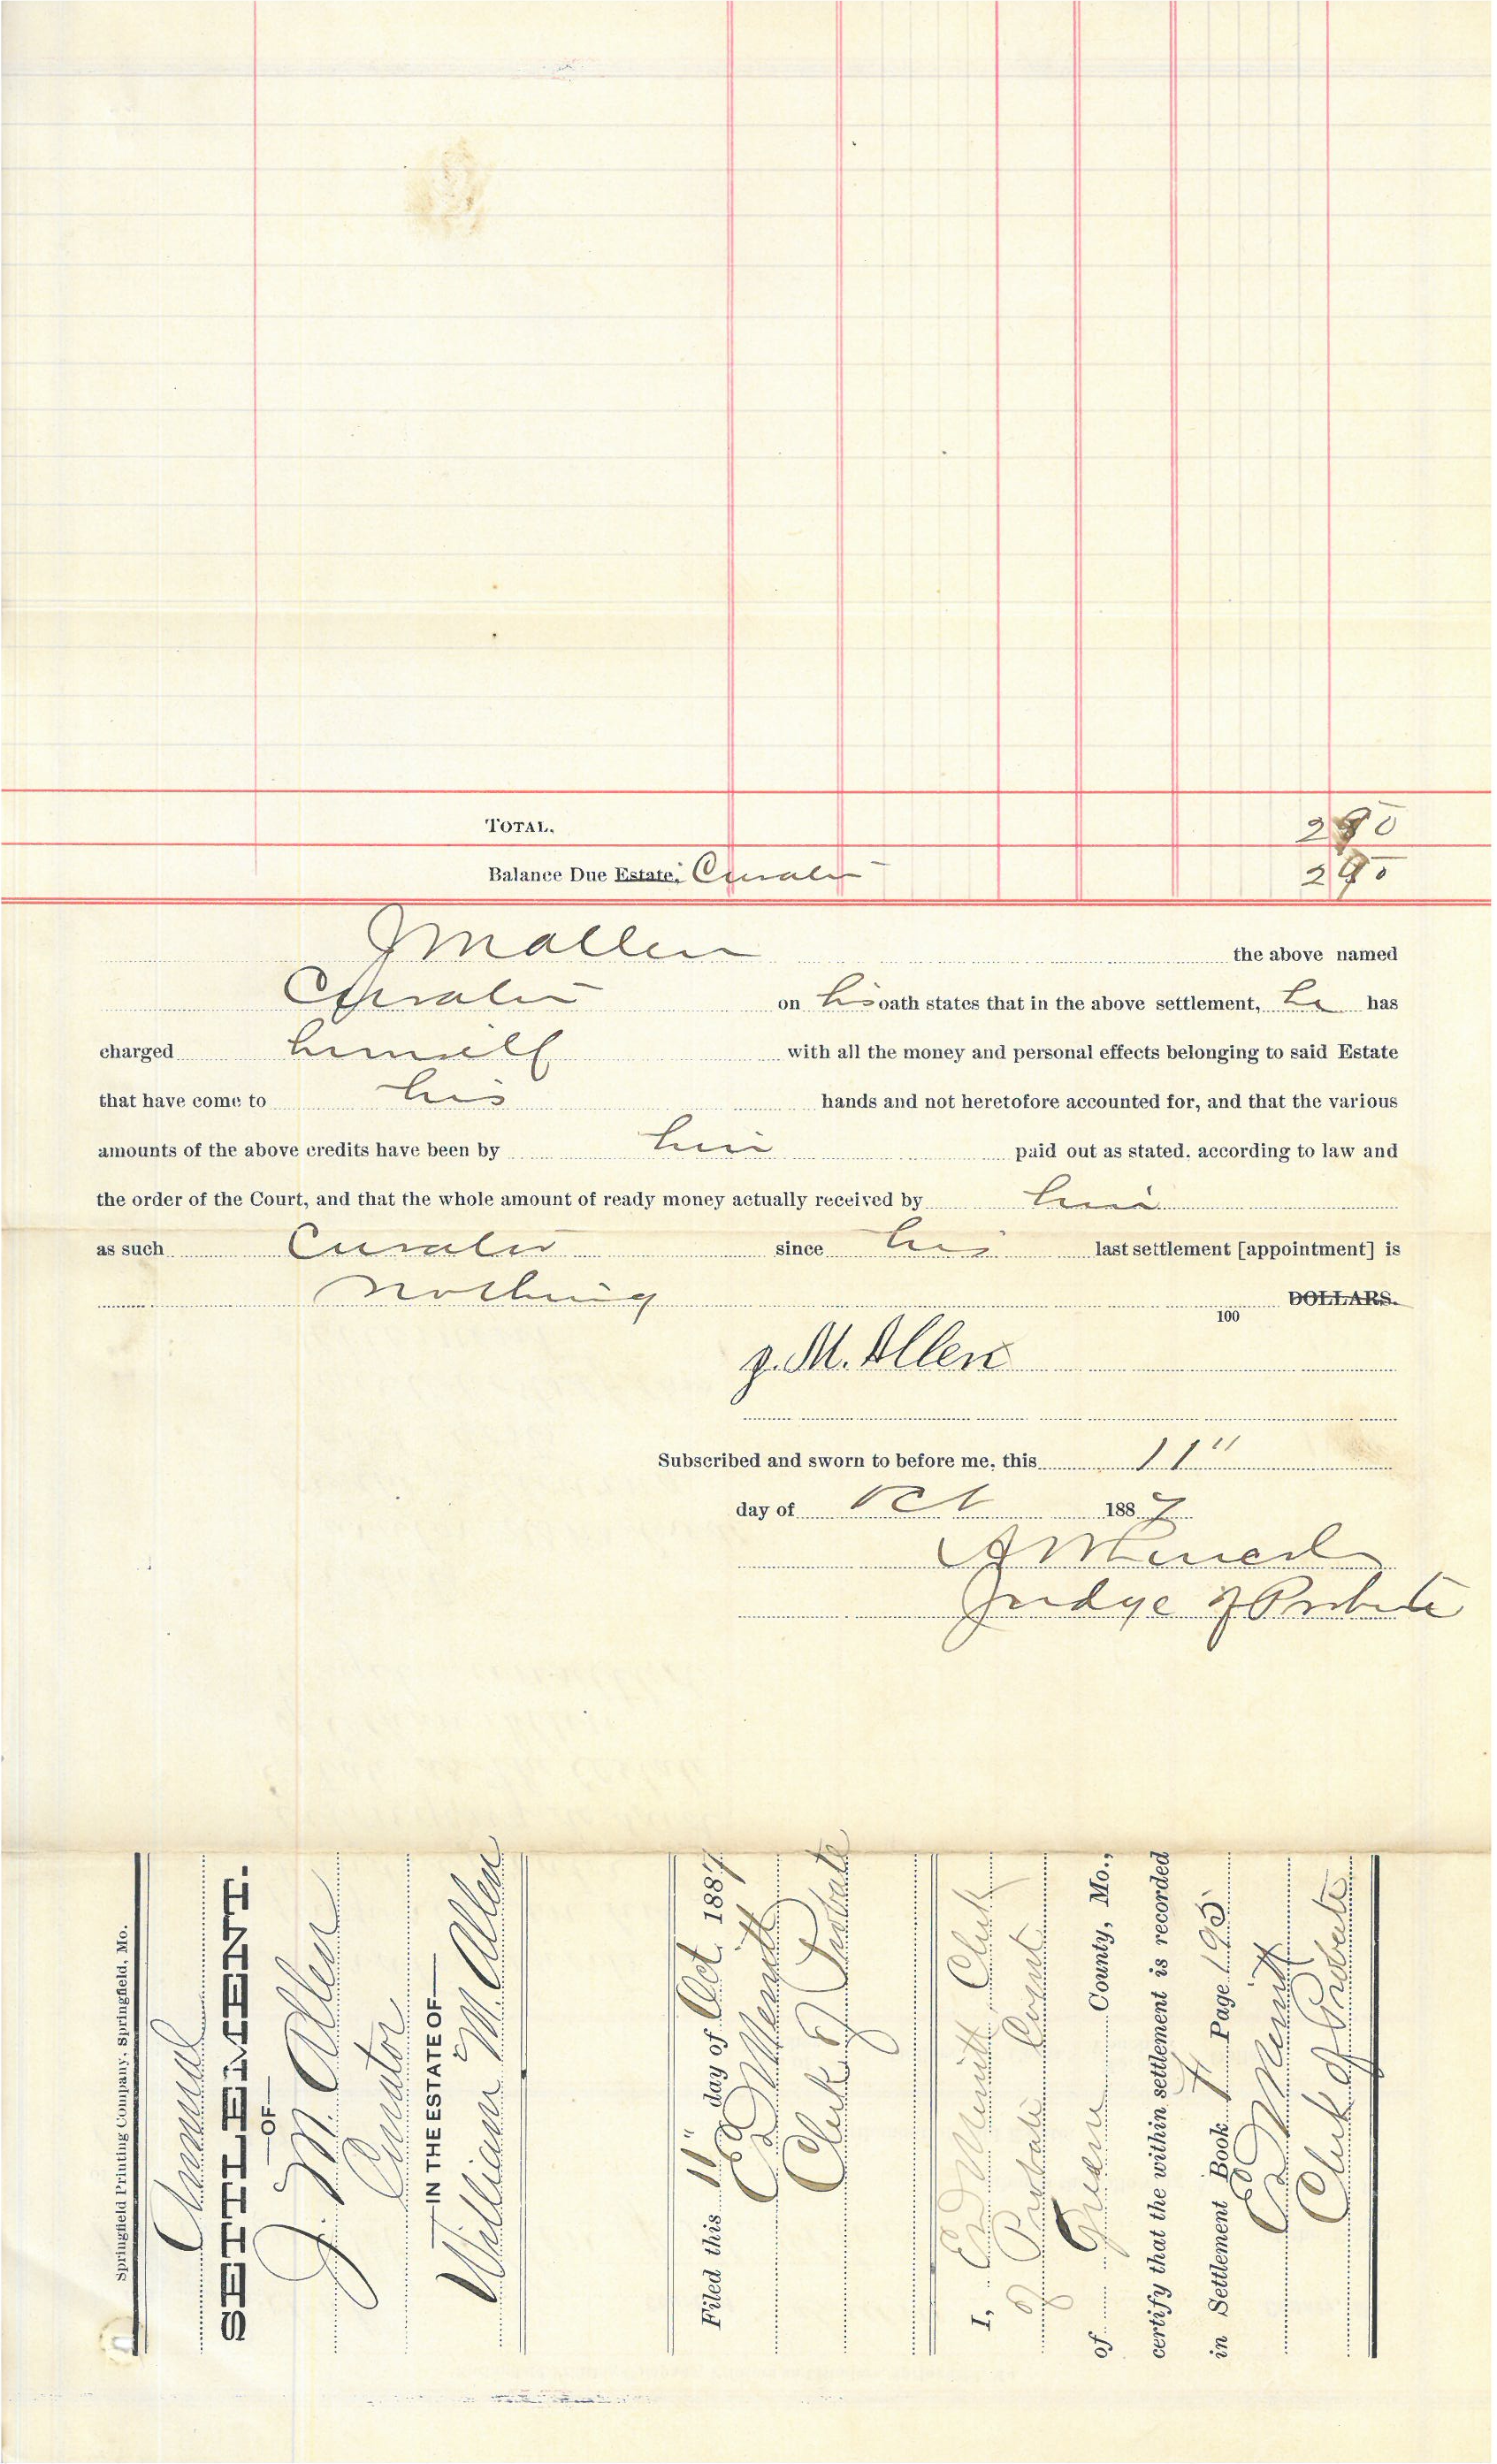 TOTAL. 2 90
Balance Due Estate, Curator 2 90
J M Allen the above named
Curator on his oath states that in the above settlement, he has
charged himself with all the money and personal effects belonging to said Estate
that have come to his hands and not heretofore accounted for, and that the various
amounts of the above credits have been by him paid out as stated, according to law and
the order of the Court, and that the whole amount of ready money actually received by him
as such Curator since his last settlement [appointment] is
nothing DOLLARS.
100
J. M. Allen
Subscribed and sworn to before me, this 11"
day of Oct 1887
Judge of Probate
Springfield Printing Company, Springfield, Mo.
Annual
SETTLEMENT.
—OF—
J. M. Allen
Curator
—IN THE ESTATE OF—
William M. Allen
Filed this 11" day of Oct. 1887
Ed Merritt
Clerk of Probate
I, Ed Merritt Clerk
of Probate Court
of Green County, Mo.,
certify that the within settlement is recorded
in Settlement Book H Page 195
Ed Merritt
Clerk of Probate